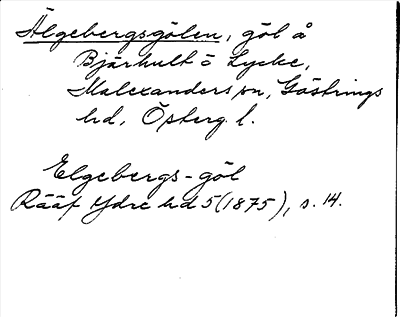 Älgebergsgölen, göl å
Bjärhult ö Lycke,
Malexanders sn, Göstrings
hd, Östergl.
Elgebergs-göl
Rääf Ydre hd 5 (1875), s. 14.